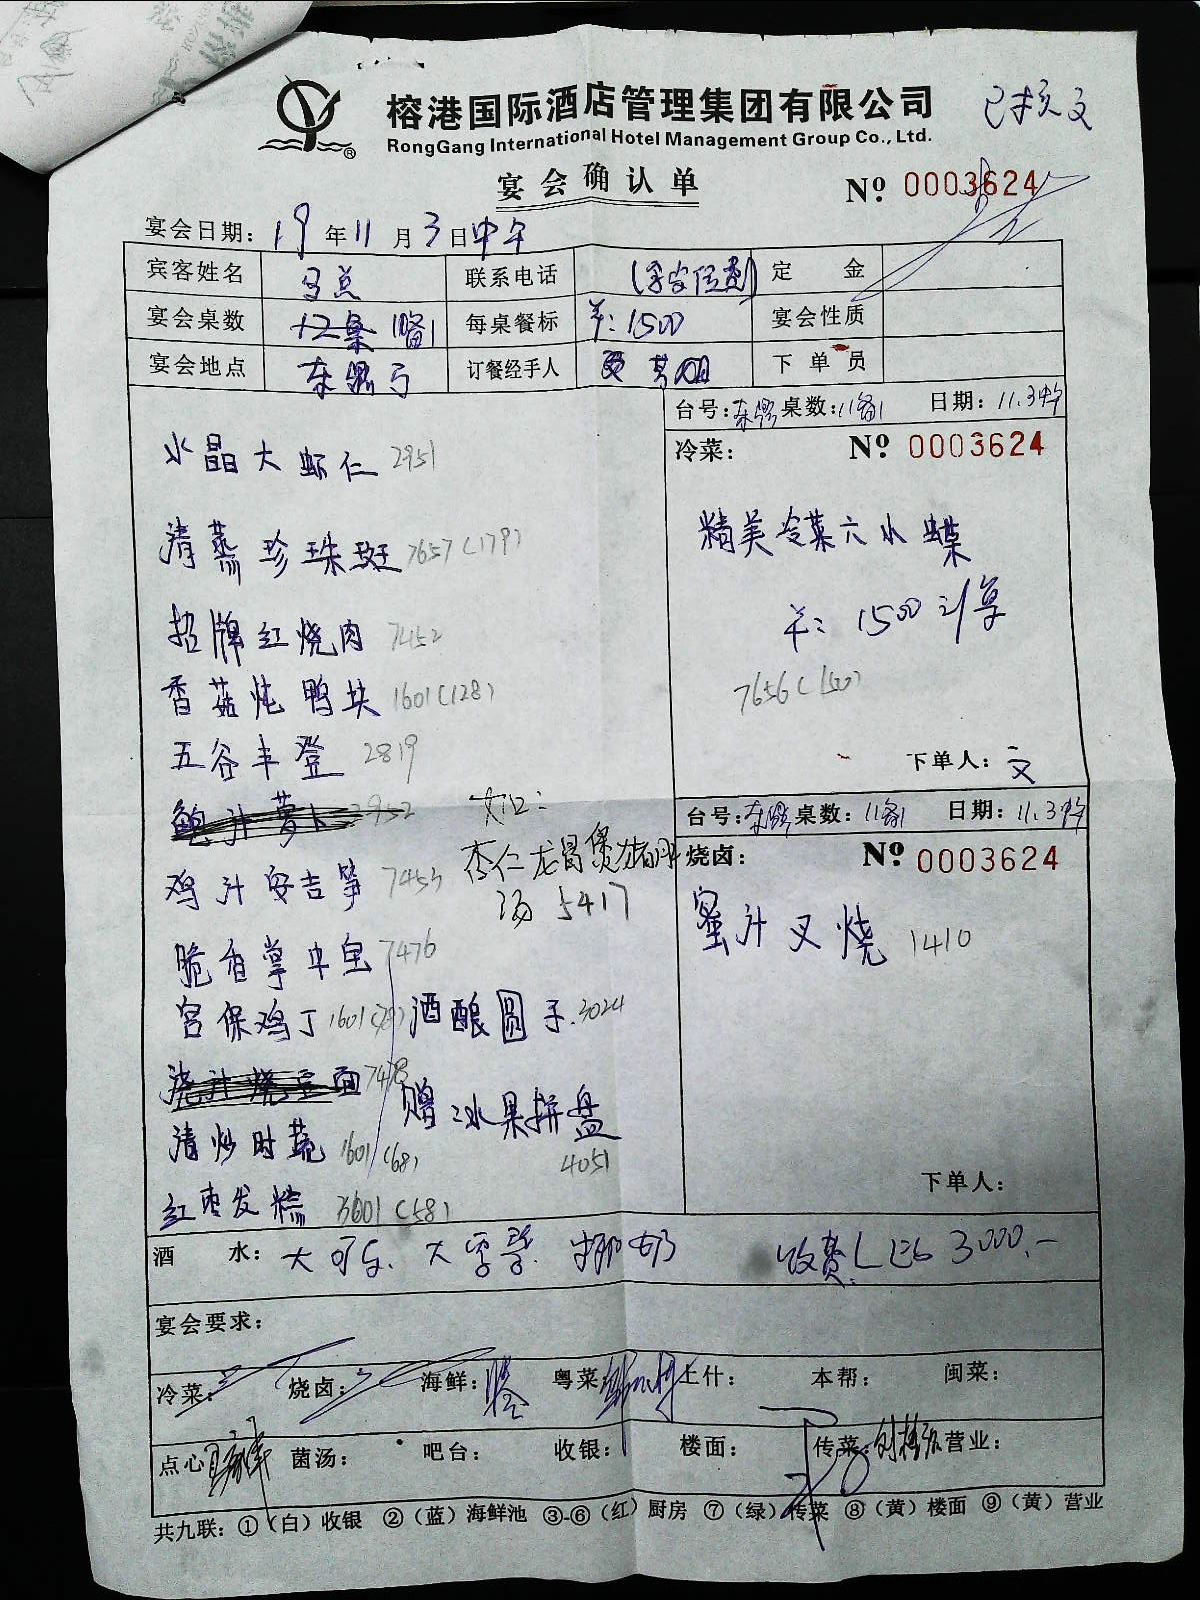 榕港国际酒店管理集团有限公司
RongGang International Hotel Management Group Co., Ltd.
已核 文
宴会确认单
Nº 0003624
宴会日期: 19 年 11 月 3 日 中午
宾客姓名 马总 联系电话 定金
宴会桌数 11备1 每桌餐标 羊: 1500 宴会性质
宴会地点 东 订餐经手人 下单员
台号: 东 桌数: 11备1 日期: 11.3中午
冷菜: Nº 0003624
水晶大虾仁 2951
精美冷菜六小碟
清蒸珍珠斑 7657(179)
羊: 1500计算
招牌红烧肉 7452
7656(150)
香菇炖鸭块 1601(128)
五谷丰登 2819
下单人: 文
鲍汁萝卜 2952
台号: 东 桌数: 11备1 日期: 11.3中午
烧卤: Nº 0003624
鸡汁安吉笋 7453
杏仁龙骨煲猪肺
汤 5417
蜜汁叉烧 1410
脆香掌中宝 7476
宫保鸡丁 1601(78) 酒酿圆子 3024
浇汁烧豆面 7478
赠 水果拼盘
4051
清炒时蔬 1601(68)
下单人:
红枣发糕 3601(58)
酒水: 大可乐. 大雪碧. 椰奶 收费 3000.-
宴会要求:
冷菜: 烧卤: 海鲜: 粤菜: 上什: 本帮: 闽菜:
点心: 菌汤: 吧台: 收银: 楼面: 传菜: 营业:
共九联: ①(白)收银 ②(蓝)海鲜池 ③-⑥(红)厨房 ⑦(绿)传菜 ⑧(黄)楼面 ⑨(黄)营业